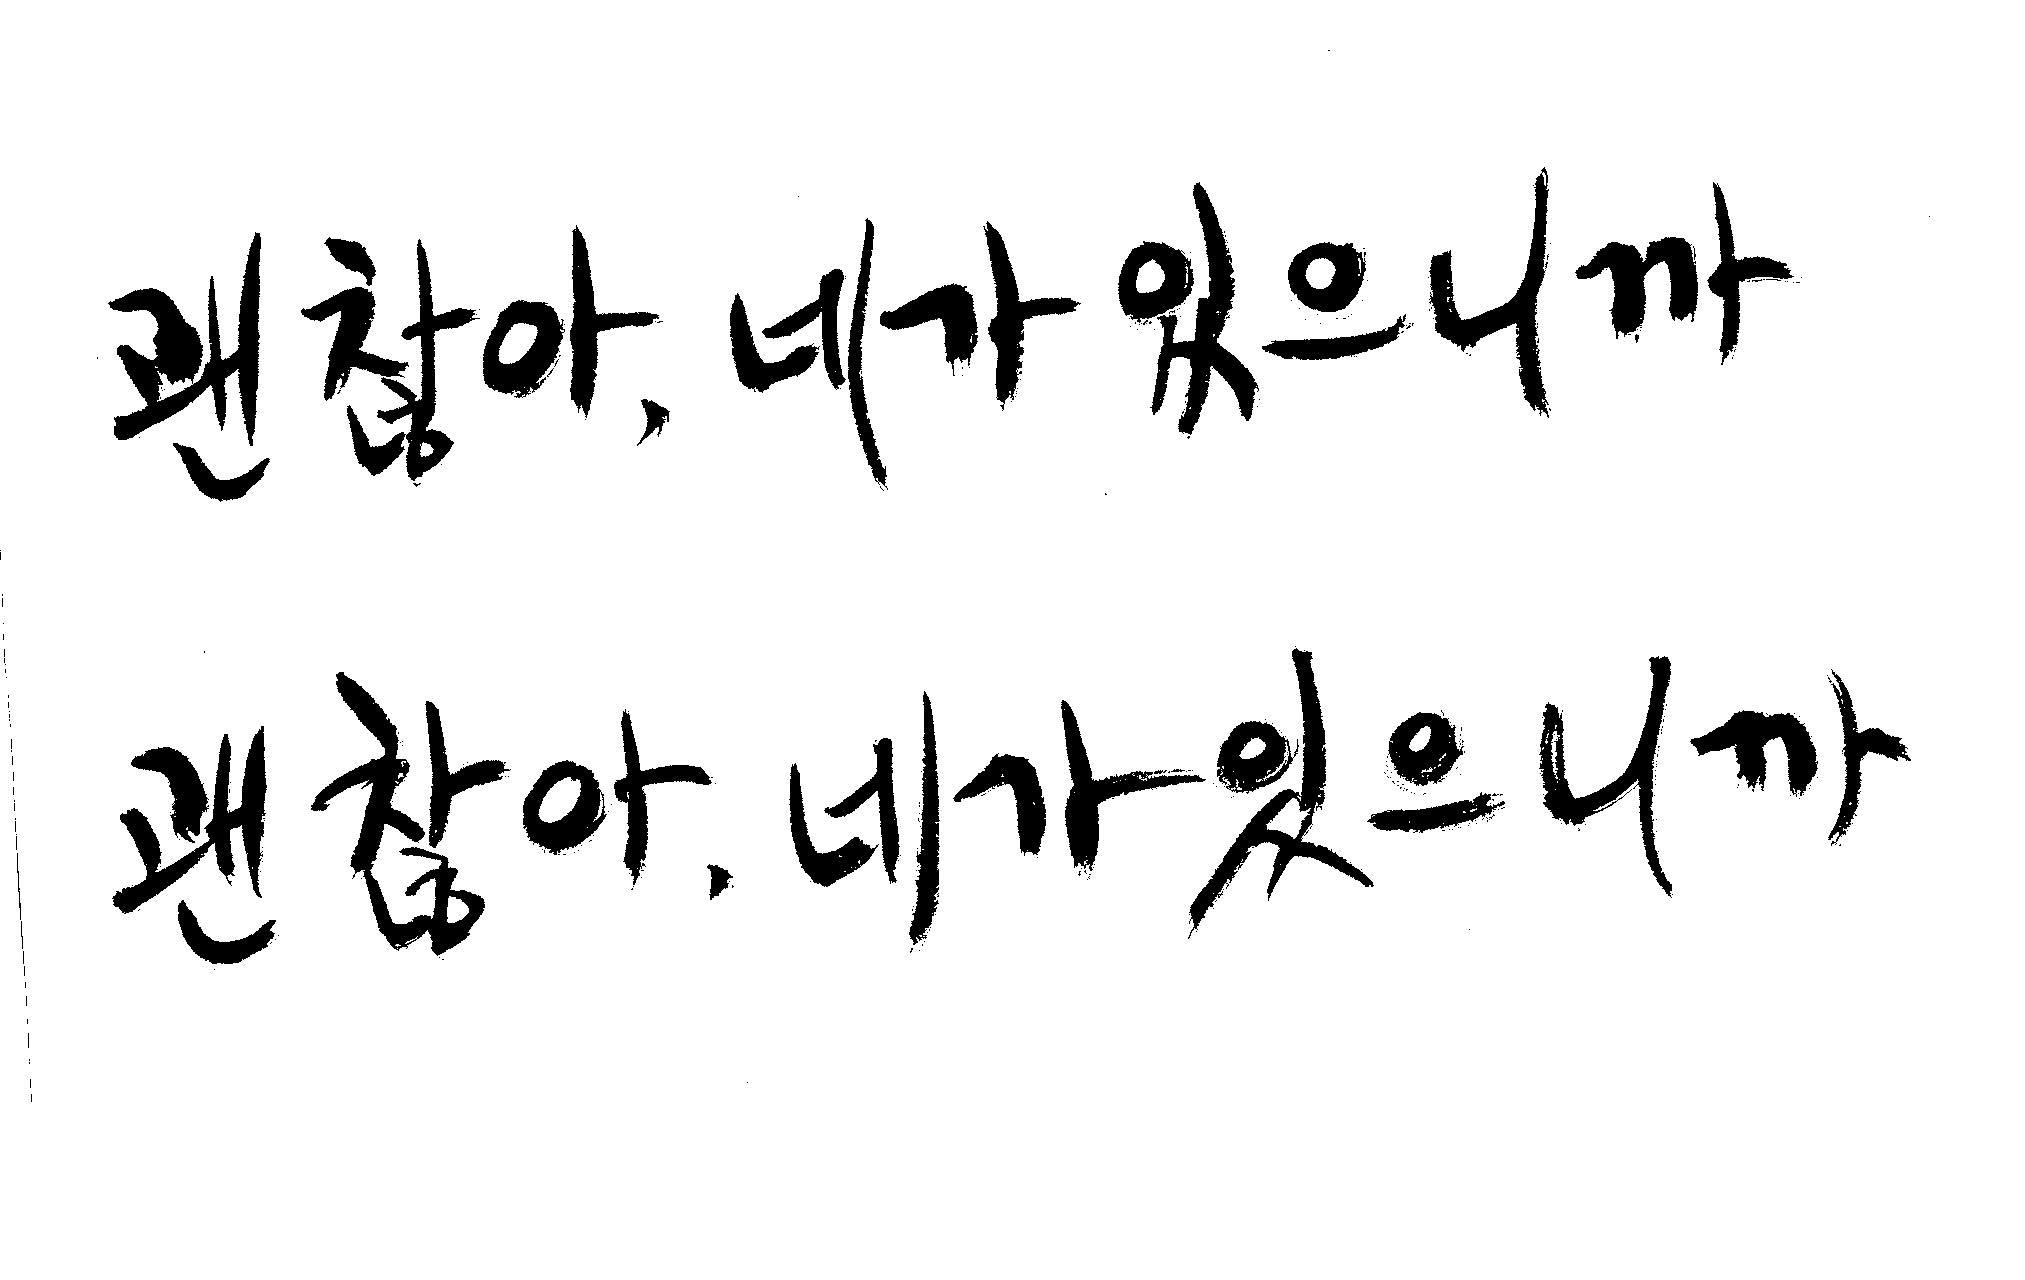 괜찮아, 네가 있으니까
괜찮아, 네가 있으니까